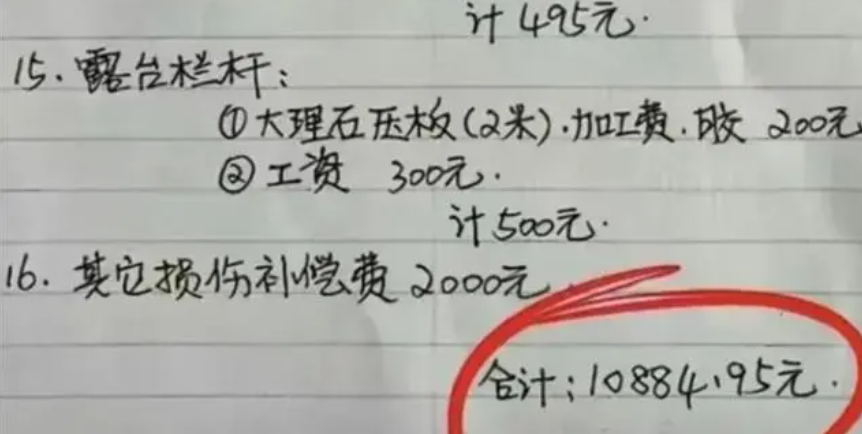 计495元.
15. 露台栏杆:
①大理石压板(2米).加工费.胶 200元
②工资 300元.
计500元.
16. 其它损伤补偿费2000元.
合计:10884.95元.